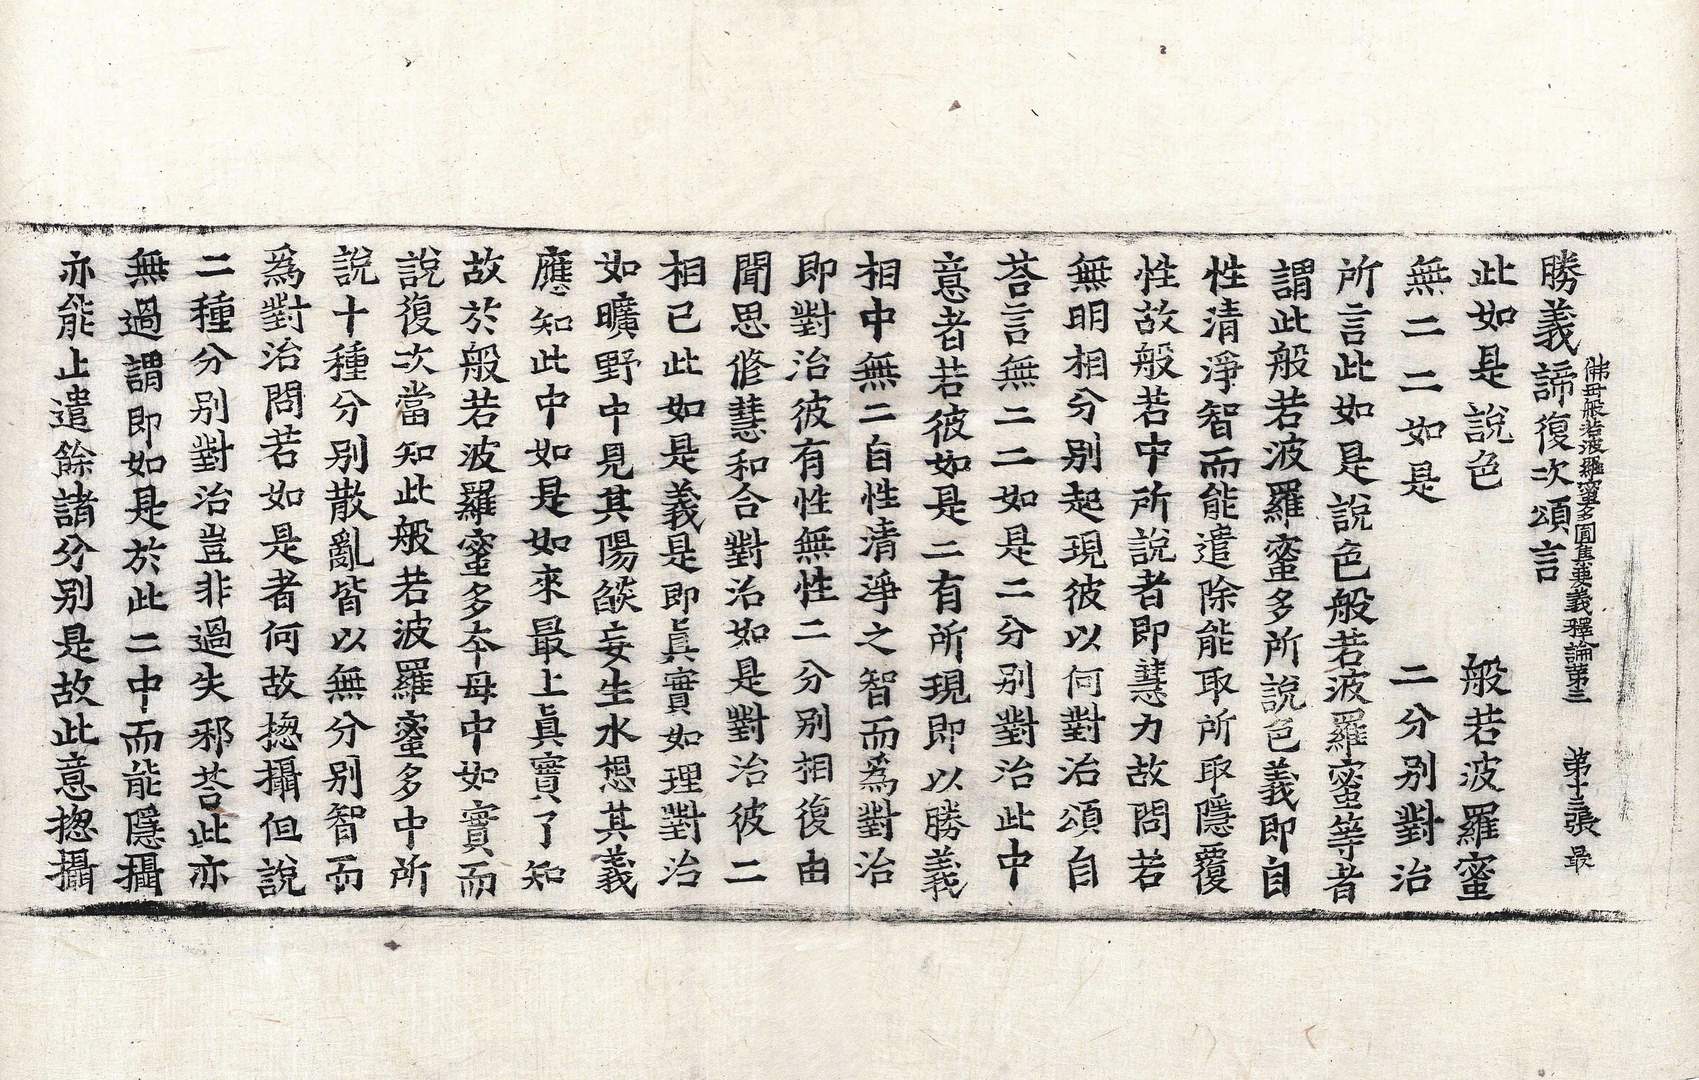 佛母般若波羅蜜多圓集要義釋論第三　第十三張　最
勝義諦復次頌言
此如是說色　般若波羅蜜
無二二如是　二分別對治
所言此如是說色般若波羅蜜等者
謂此般若波羅蜜多所說色義即自
性清淨智而能遣除能取所取隱覆
性故般若中所說者即慧力故問若
無明相分別起現彼以何對治頌自
荅言無二二如是二分別對治此中
意者若彼如是二有所現即以勝義
相中無二自性清淨之智而爲對治
即對治彼有性無性二分別相復由
聞思修慧和合對治如是對治彼二
相已此如是義是即眞實如理對治
如曠野中見其陽燄妄生水想其義
應知此中如是如來最上眞實了知
故於般若波羅蜜多本母中如實而
說復次當知此般若波羅蜜多中所
說十種分別散亂皆以無分別智而
爲對治問若如是者何故揔攝但說
二種分別對治豈非過失邪荅此亦
無過謂即如是於此二中而能隱攝
亦能止遣餘諸分別是故此意揔攝